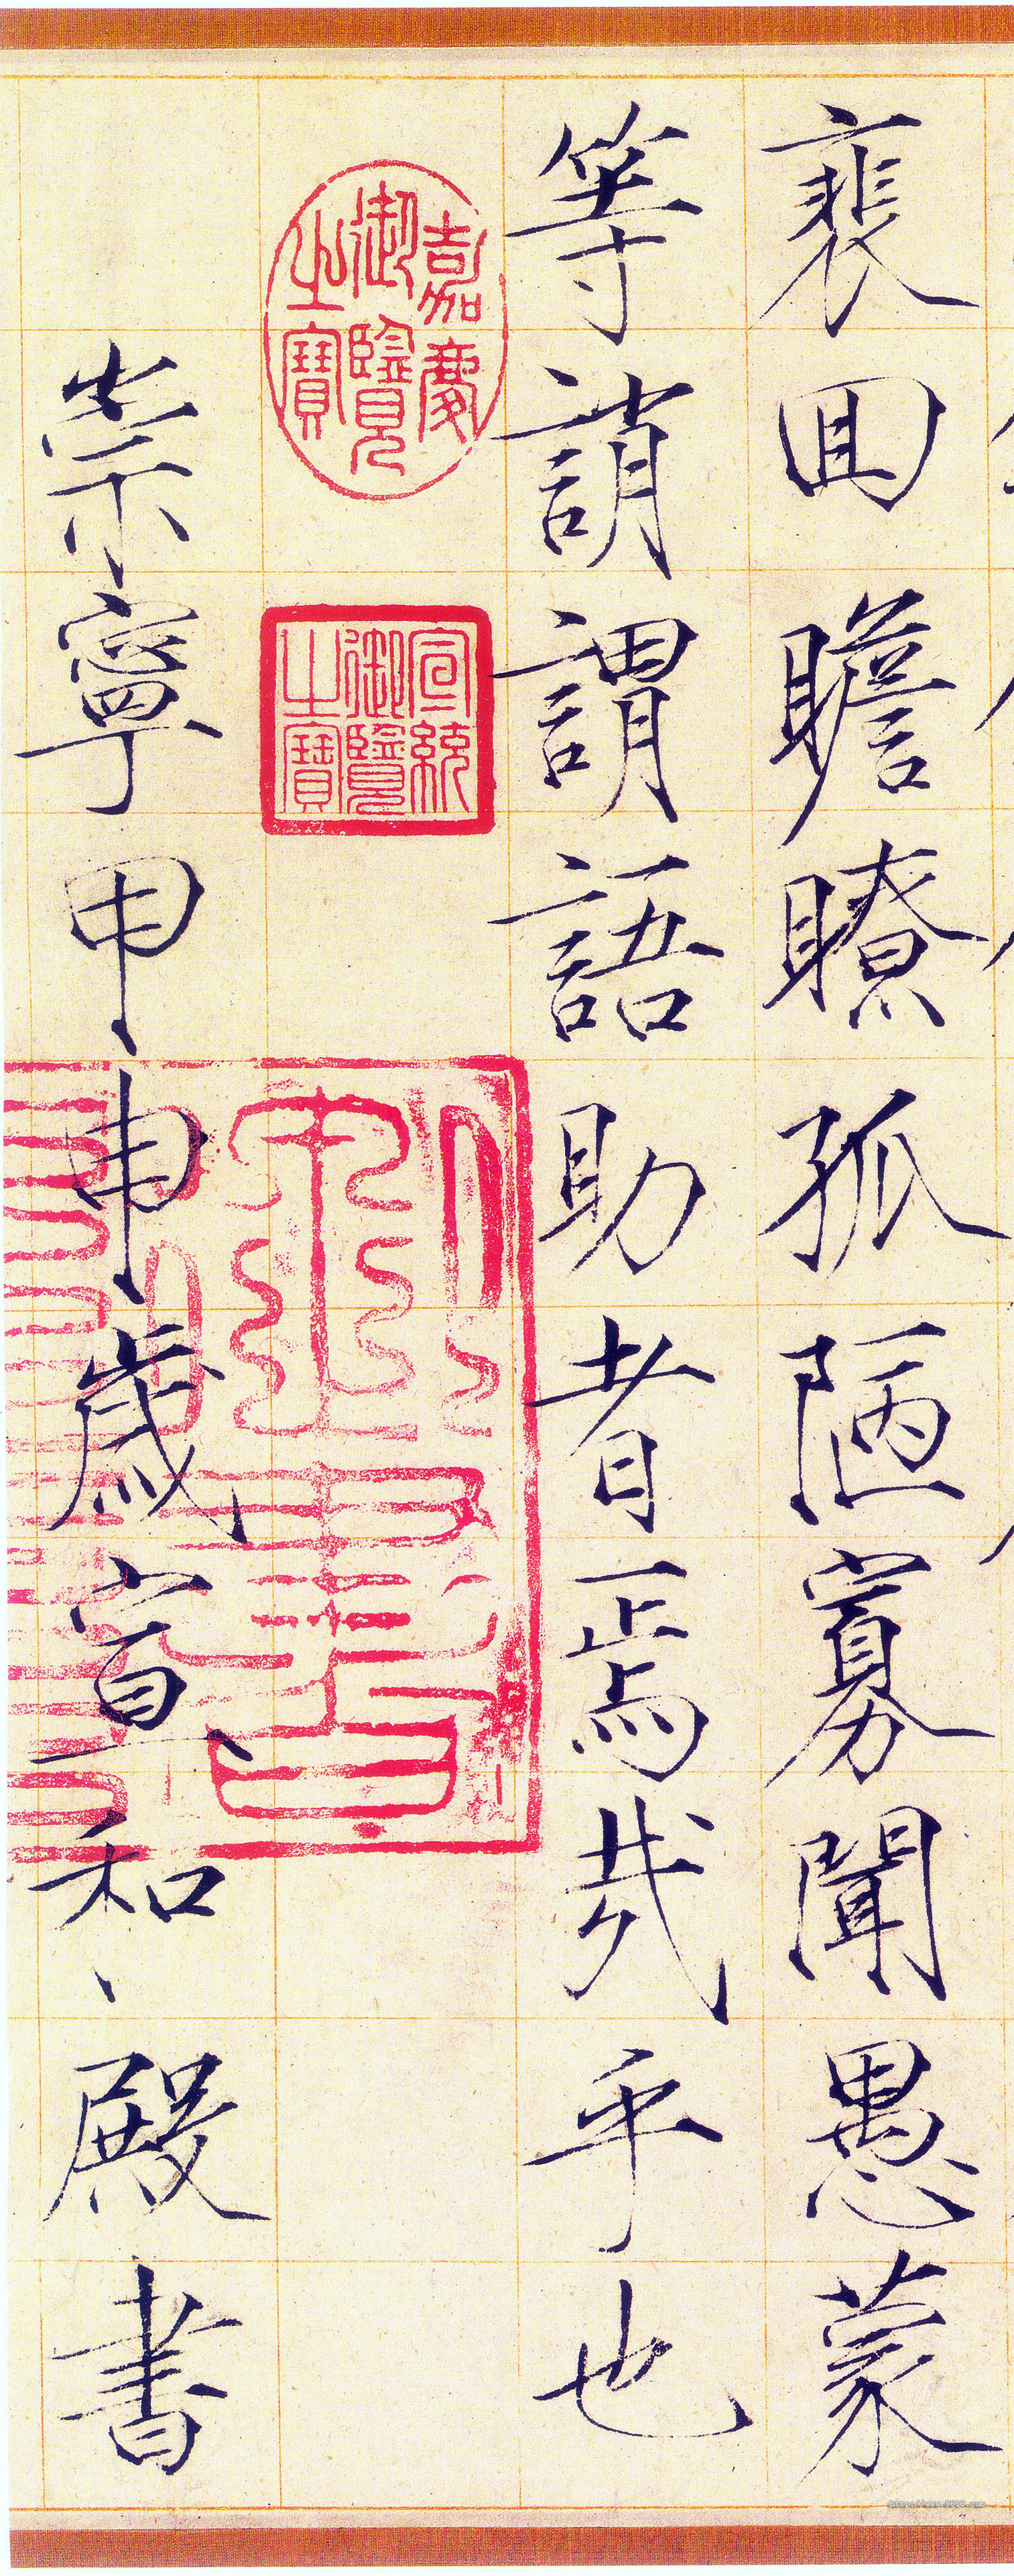 裴回瞻瞭孤陋寡聞愚蒙
等誚謂語助者焉哉乎也
嘉慶御覽之寶
宣統御覽之寶
崇寧甲申歲宣和殿書